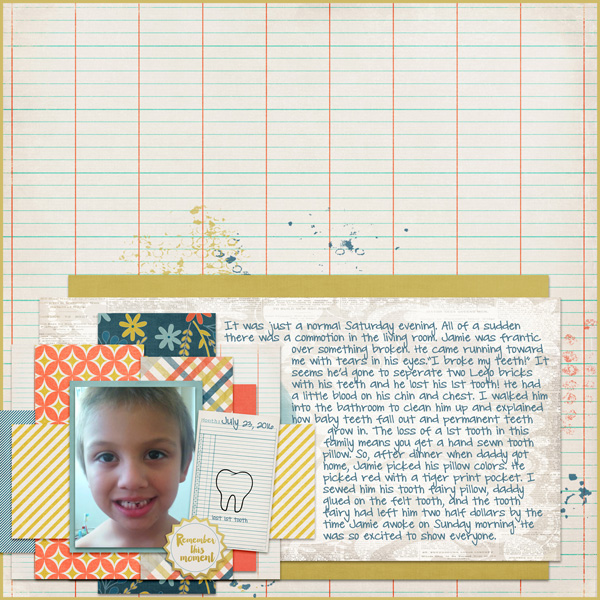 It was just a normal Saturday evening. All of a sudden
there was a commotion in the living room. Jamie was frantic
over something broken. He came running toward
me with tears in his eyes."I broke my teeth!" It
seems he'd gone to seperate two Lego bricks
with his teeth and he lost his 1st tooth! He had
a little blood on his chin and chest. I walked him
into the bathroom to clean him up and explained
how baby teeth fall out and permanent teeth
grow in. The loss of a 1st tooth in this
family means you get a hand sewn tooth
pillow. So, after dinner when daddy got
home, Jamie picked his pillow colors. He
picked red with a tiger print pocket. I
sewed him his tooth fairy pillow, daddy
glued on the felt tooth, and the tooth
fairy had left him two half dollars by the
time Jamie awoke on Sunday morning. He
was so excited to show everyone.
July 23, 2016
lost 1st tooth
Remember
this
moment